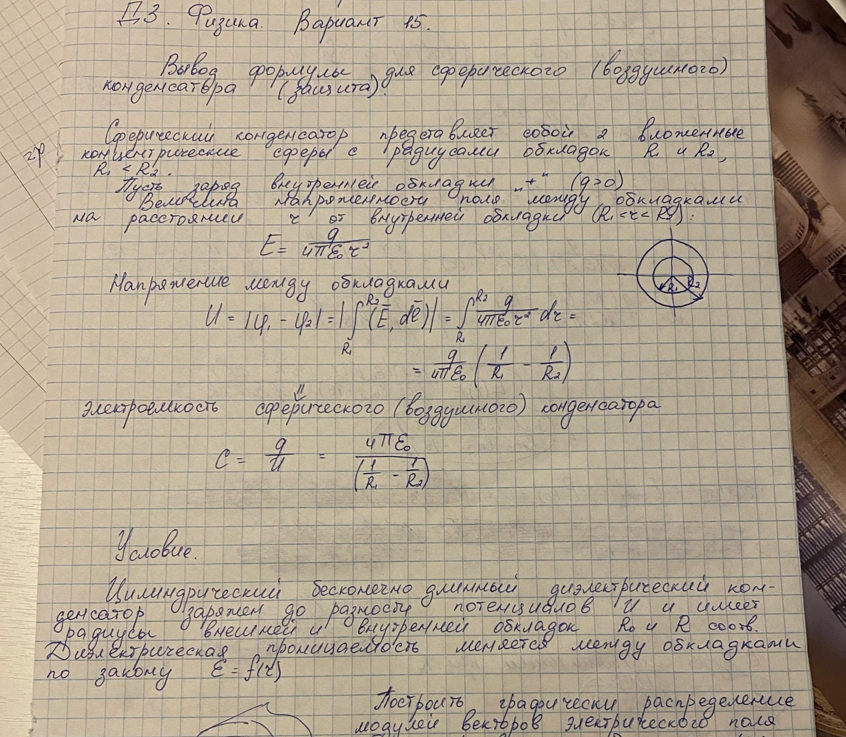 ДЗ. Физика. Вариант 15.
Вывод формулы для сферического (воздушного)
конденсатора (защита).
Сферический конденсатор представляет собой 2 вложенные
концентрические сферы с радиусами обкладок R₁ и R₂,
R₁ < R₂.
Пусть заряд внутренней обкладки „+“ (q>0)
Величина напряженности поля между обкладками
на расстоянии r от внутренней обкладки (R₁<r<R₂):
E = q/(4πε₀r²)
R₁ R₂
Напряжение между обкладками
U = |φ₁ - φ₂| = |∫_{R₁}^{R₂} (E̅, dℓ̅)| = ∫_{R₁}^{R₂} q/(4πε₀r²) dr =
= q/(4πε₀) (1/R₁ - 1/R₂)
Электроемкость сферического (воздушного) конденсатора
C = q/U = 4πε₀/(1/R₁ - 1/R₂)
Условие.
Цилиндрический бесконечно длинный диэлектрический кон-
денсатор заряжен до разности потенциалов U и имеет
радиусы внешней и внутренней обкладок R₀ и R соотв.
Диэлектрическая проницаемость меняется между обкладками
по закону ε = f(r)
Построить графически распределение
модулей векторов электрического поля